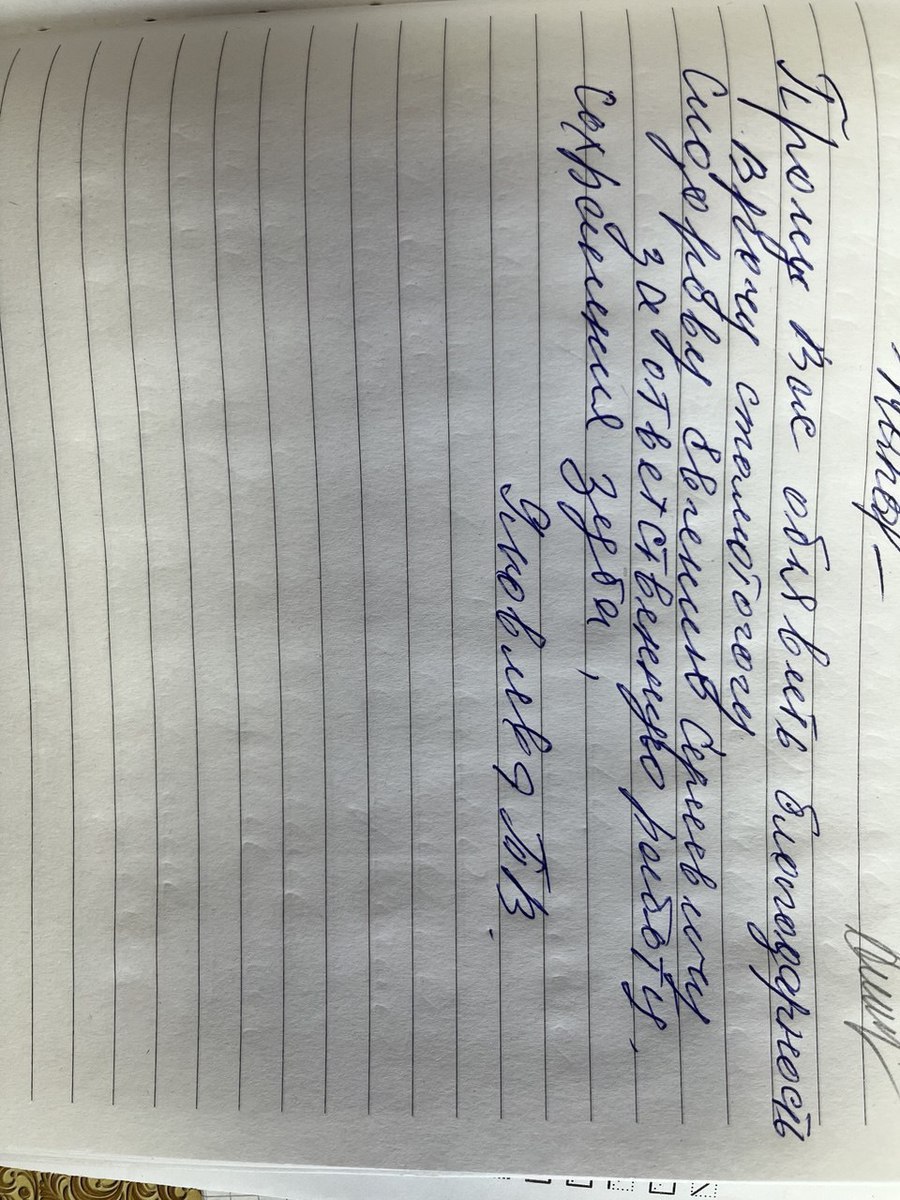 Прошу Вас объявить благодарность
врачу стоматологу
Сидорову Евгению Сергеевичу
за ответственную работу,
сохранения зуба,
Яковлева Т.В.